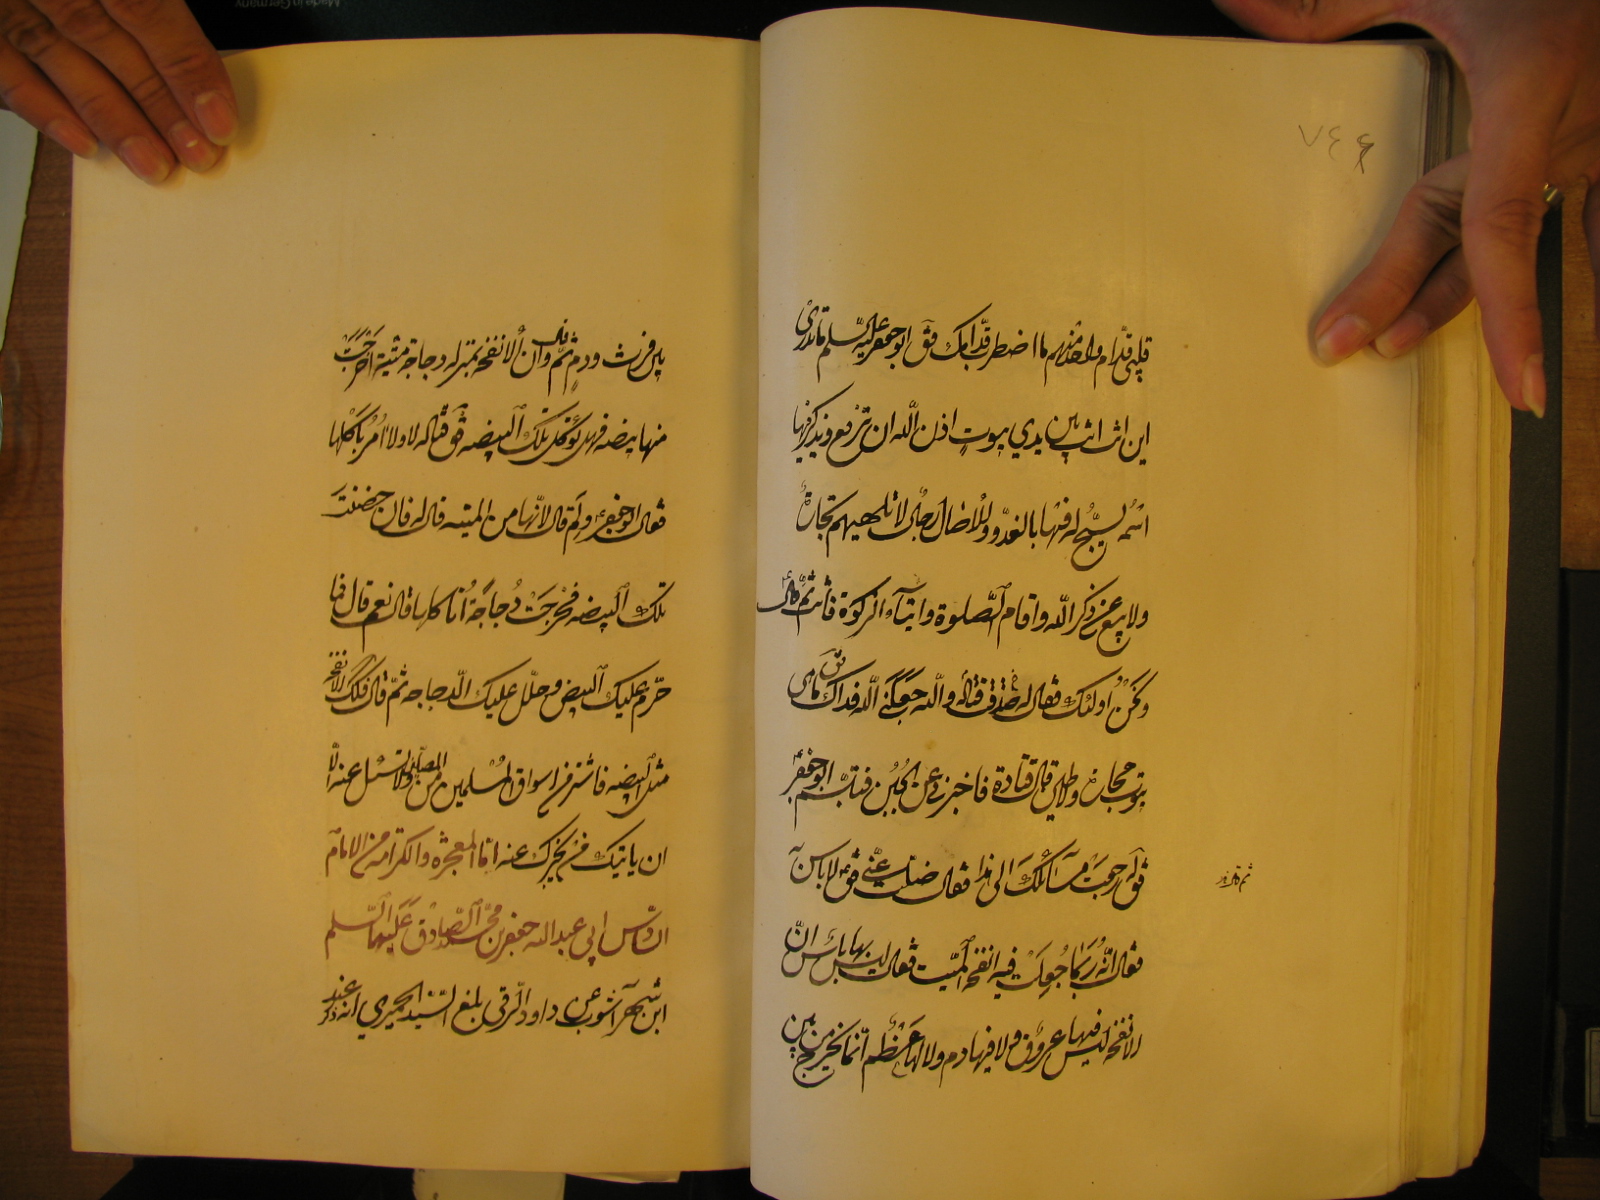 ٧٤٤
قلبي قدّام واحد منهم ما اضطرب قدّامك فق ابو جعفر عليه السلم ما تدري
اين انت انت بين يدي بيوت اذن اللّه ان ترفع ويذكر فيها
اسمه يسبّح له فيها بالغدوّ والاصال رجال لا تلهيهم تجارة
ولا بيع عن ذكر اللّه واقام الصّلوة وايتاء الزكوة فانت ثمّ
ونحن اولئك فقال له صدقت واللّه جعلني اللّه فداك ما هي
بيوت حجارة ولا طين قال قتادة فاخبرني عن الجبن فتبسّم ابو جعفر
فق له رجعت مسائلك الى هذا فقال ضلّت عنّي فق لا باس به
فقال انّه ربما جعلت فيه انفحة الميت فقال ليس بها باس انّ
الانفحة ليس فيها عروق ولا فيها دم ولا لها عظم انّما تخرج من بين
بين فرث ودم ثمّ قال وانّ الانفحة بمنزلة دجاجة ميتة اخرجت
منها بيضة فهل تؤكل تلك البيضه فق قتاده لا ولا امر باكلها
فقال ابو جعفر ولم قال لانّها من الميته قال له فان حضنت
تلك البيضه فخرجت دجاجة أتاكلها قال نعم قال فما
حرّم عليك البيض وحلّل عليك الدجاجه ثمّ قال فكذلك الانفحة
مثل البيضه فاشتر من اسواق المسلمين من المصلّين ولا تسئل عنه الّا
ان ياتيك من يخبرك عنه امّا المعجزه والكرامة من الامام
السّادس ابي عبد الله جعفر بن محمّد الصّادق عليهما السّلم
ابن شهر آشوب عن داود الرقي بلغ السّيّد الحميري انه ذكر عند